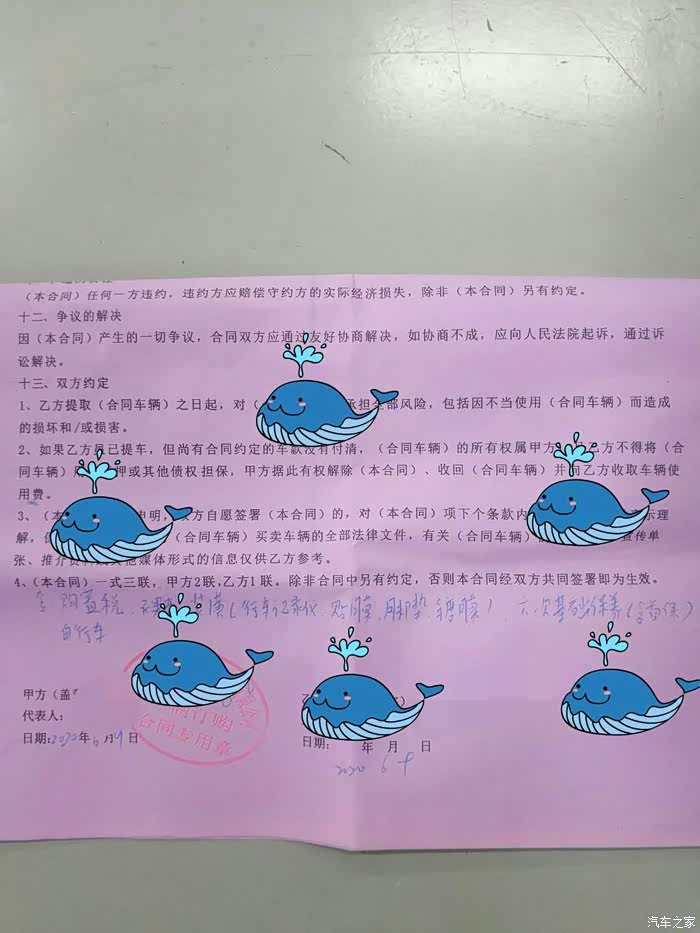 （本合同）任何一方违约，违约方应赔偿守约方的实际经济损失，除非（本合同）另有约定。
十二、争议的解决
因（本合同）产生的一切争议，合同双方应通过友好协商解决，如协商不成，应向人民法院起诉，通过诉
讼解决。
十三、双方约定
1、乙方提取（合同车辆）之日起，对（ 承担全部风险，包括因不当使用（合同车辆）而造成
的损坏和/或损害。
2、如果乙方虽已提车，但尚有合同约定的车款没有付清，（合同车辆）的所有权属甲方 乙方不得将（合
同车辆） 押或其他债权担保，甲方据此有权解除（本合同）、收回（合同车辆）并向乙方收取车辆使
用费。
3、（本 申明，双方自愿签署（本合同）的，对（本合同）项下个条款内 示理
解， （合同车辆）买卖车辆的全部法律文件，有关（合同车辆） 宣传单
张、推介 其他媒体形式的信息仅供乙方参考。
4、（本合同）一式三联，甲方2联，乙方1联。除非合同中另有约定，否则本合同经双方共同签署即为生效。
含购置税、 （行车记录仪、贴膜、脚垫、镀膜）、六次基础保养（含首保）
自行车
甲方（盖
代表人：
日期：2020年6月9日
订购
合同专用章
日期： 年 月 日
2020 6
汽车之家